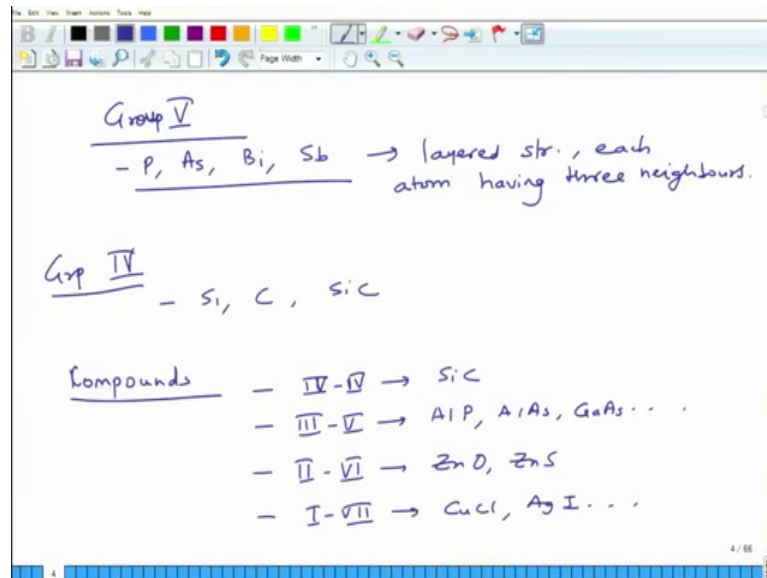 File Edit View Insert Actions Tools Help
B I
Page Width
Group V
- P, As, Bi, Sb → layered str., each
atom having three neighbours.
Grp IV
- Si, C, SiC
Compounds - IV-IV → SiC
- III-V → AlP, AlAs, GaAs . . .
- II-VI → ZnO, ZnS
- I-VII → CuCl, AgI . . .
4 / 66
4